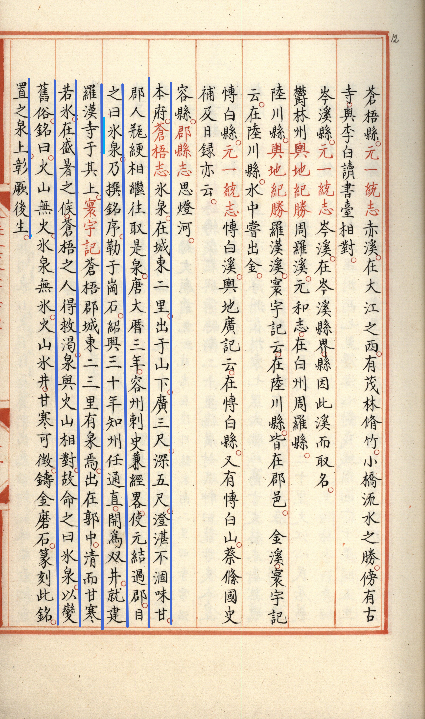 12
蒼梧縣元一統志赤溪在大江之西有茂林脩竹小橋流水之勝傍有古
寺與李白讀書臺相對
岑溪縣元一統志岑溪在岑溪縣界縣因此溪而取名
鬱林州輿地紀勝周羅溪元和志在白州周羅縣
陸川縣輿地紀勝羅漢溪寰宇記云在陸川縣皆在郡邑 金溪寰宇記
云在陸川縣水中嘗出金
博白縣元一統志博白溪輿地廣記云在博白縣又有博白山蔡絛國史
補及目録亦云
容縣郡縣志思燈河
本府蒼梧志氷泉在城東二里出于山下廣三尺深五尺澄湛不涸味甘
郡人甁綆相繼往取是泉唐大曆三年容州刺史兼經畧使元結過郡目
之曰氷泉乃撰銘序勒于崗石紹興三十年知州任通直開爲双井就建
羅漢寺于其上寰宇記蒼梧郡城東二三里有泉焉出在郭中清而甘寒
若氷在盛暑之候蒼梧之人得救渴泉與火山相對故命之曰氷泉以變
舊俗銘曰火山無火氷泉無氷火山氷井甘寒可徵鑄金磨石篆刻此銘
置之泉上彰厥後生